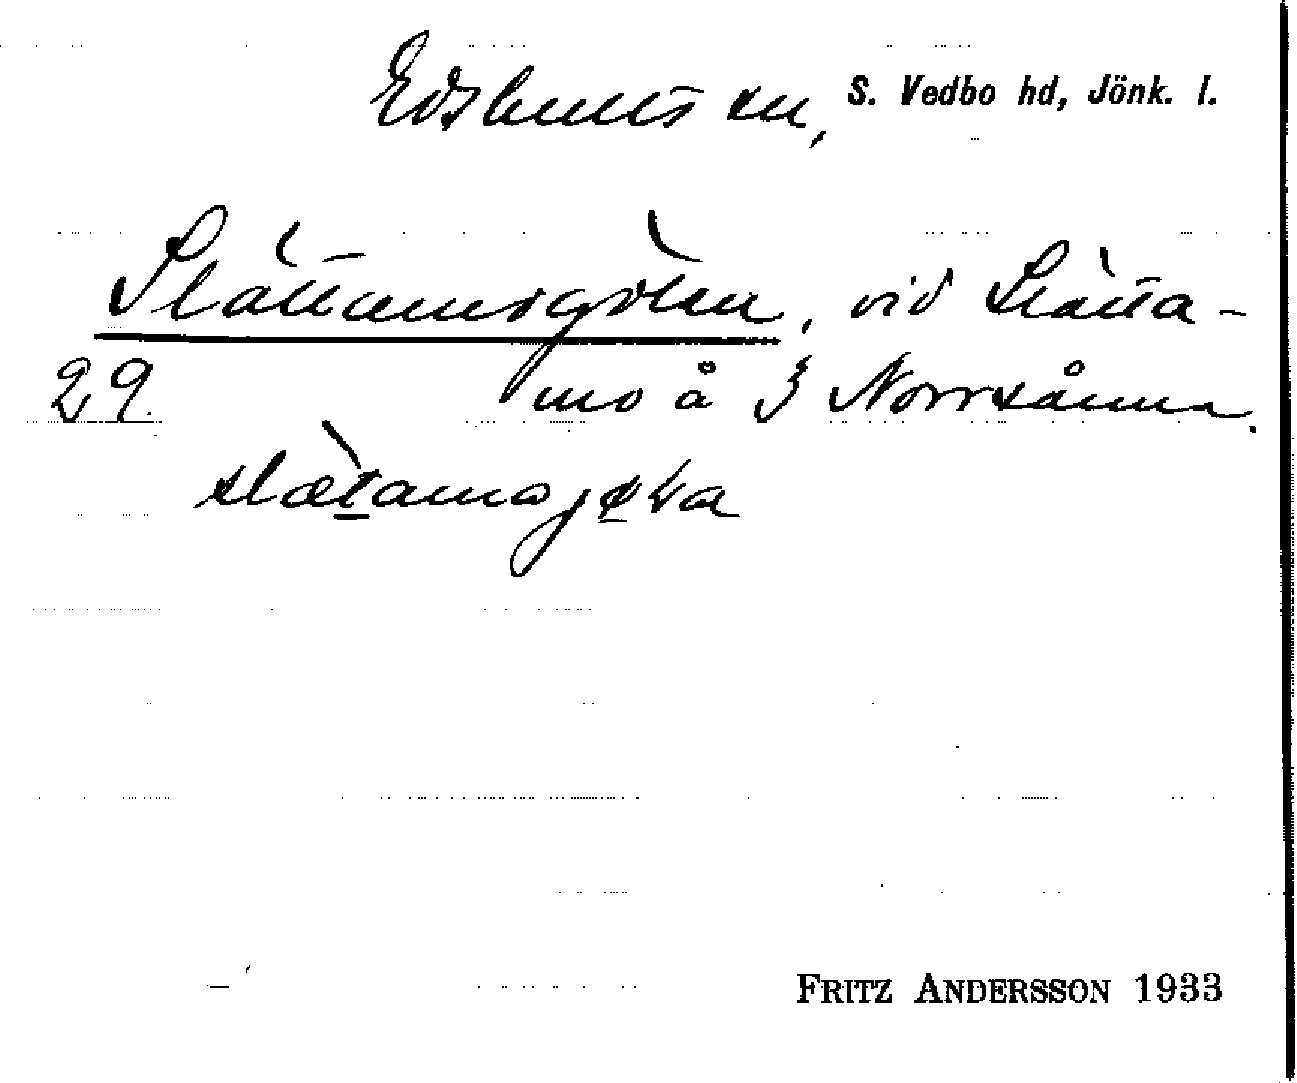 Edshults sn, S. Vedbo hd, Jönk. l.
Slättamogölen, vid Slätta-
29. mo å ⅓ Norrsånna.
slætamogøla
FRITZ ANDERSSON 1933